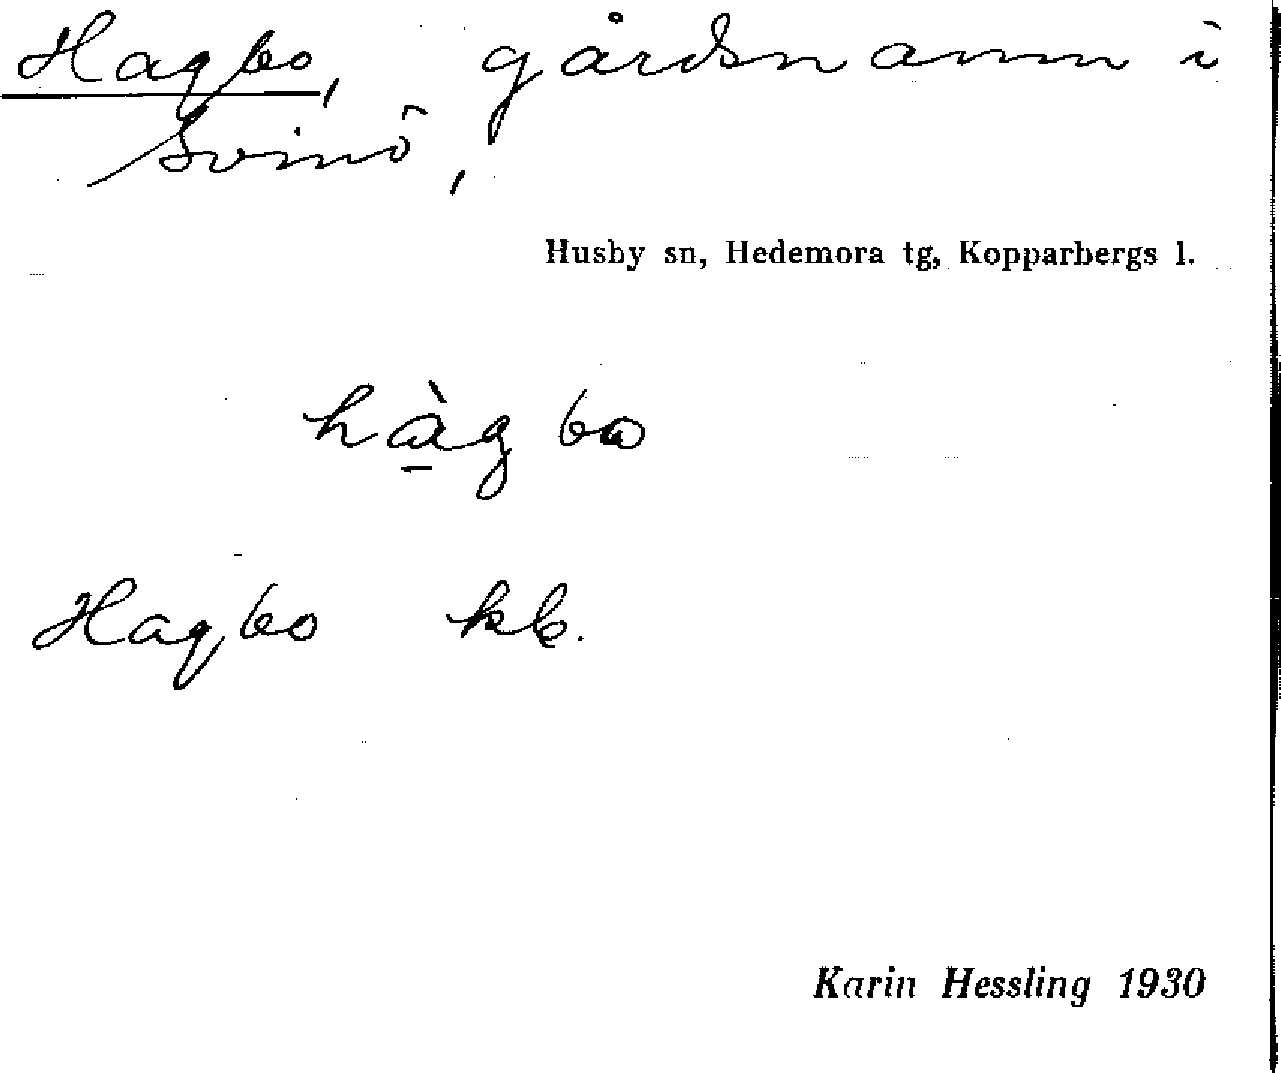 Hagbo, gårdsnamn i
Svinö,
Husby sn, Hedemora tg, Kopparbergs l.
hàg bω
Hagbo kb.
Karin Hessling 1930